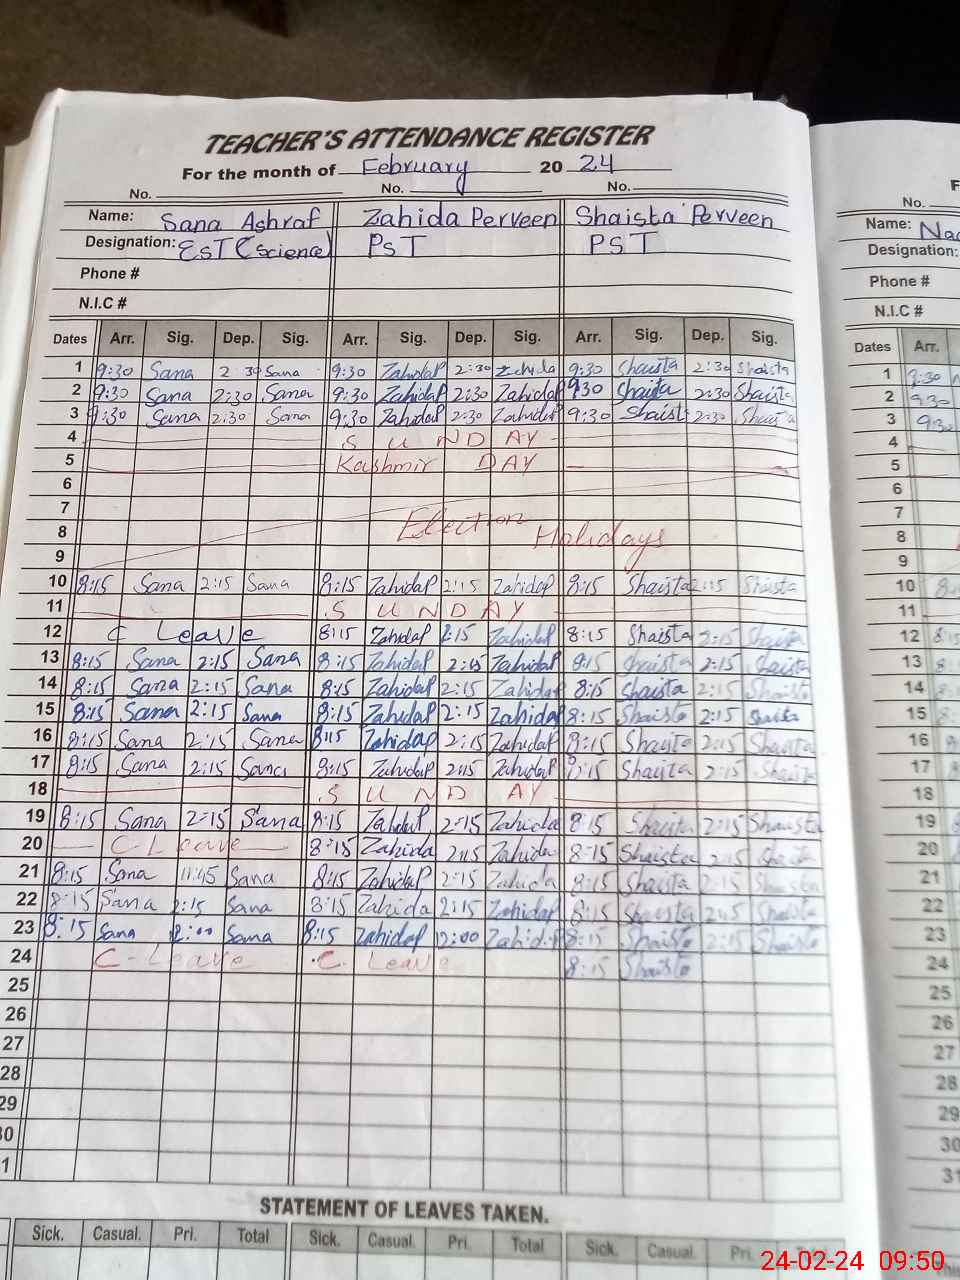 TEACHER'S ATTENDANCE REGISTER
For the month of February 2024
No. No. No.
Name: Sana Ashraf Zahida Perveen Shaista Perveen
Designation: EST (Science) PST PST
Phone #
N.I.C #
Dates Arr. Sig. Dep. Sig. Arr. Sig. Dep. Sig. Arr. Sig. Dep. Sig.
1 9:30 Sana 2:30 Sana 9:30 ZahidaP 2:30 Zahida 9:30 Shaista 2:30 Shaista
2 9:30 Sana 2:30 Sana 9:30 ZahidaP 2:30 ZahidaP 9:30 Shaista 2:30 Shaista
3 9:30 Sana 2:30 Sana 9:30 ZahidaP 2:30 ZahidaP 9:30 Shaista 2:30 Shaista
4 SUNDAY
5 Kashmir DAY
6
7
8 Election Holidays
9
10 8:15 Sana 2:15 Sana 8:15 ZahidaP 2:15 ZahidaP 8:15 Shaista 2:15 Shaista
11 SUNDAY
12 C Leave 8:15 ZahidaP 2:15 ZahidaP 8:15 Shaista 2:15 Shaista
13 8:15 Sana 2:15 Sana 8:15 ZahidaP 2:15 ZahidaP 8:15 Shaista 2:15 Shaista
14 8:15 Sana 2:15 Sana 8:15 ZahidaP 2:15 ZahidaP 8:15 Shaista 2:15 Shaista
15 8:15 Sana 2:15 Sana 8:15 ZahidaP 2:15 ZahidaP 8:15 Shaista 2:15 Shaista
16 8:15 Sana 2:15 Sana 8:15 ZahidaP 2:15 ZahidaP 8:15 Shaista 2:15 Shaista
17 8:15 Sana 2:15 Sana 8:15 ZahidaP 2:15 ZahidaP 8:15 Shaista 2:15 Shaista
18 SUNDAY
19 8:15 Sana 2:15 Sana 8:15 ZahidaP 2:15 Zahida 8:15 Shaista 2:15 Shaista
20 C Leave 8:15 Zahida 2:15 Zahida 8:15 Shaista 2:15 Shaista
21 8:15 Sana 11:45 Sana 8:15 ZahidaP 2:15 Zahida 8:15 Shaista 2:15 Shaista
22 8:15 Sana 2:15 Sana 8:15 Zahida 2:15 ZahidaP 8:15 Shaista 2:15 Shaista
23 8:15 Sana 12:00 Sana 8:15 ZahidaP 12:00 Zahida 8:15 Shaista 2:15 Shaista
24 C-Leave C. Leave 8:15 Shaista
25
26
27
28
29
30
STATEMENT OF LEAVES TAKEN.
Sick. Casual. Pri. Total Sick. Casual. Pri. Total Sick. Casual. Pri. Total
No.
Name:
Designation:
Phone #
N.I.C #
Dates Arr.
1 9:30
2 9:30
3 9:30
4
5
6
7
8
9
10
11
12
13
14
15
16
17
18
19
20
21
22
23
24
25
26
27
28
29
30
31
24-02-24 09:50